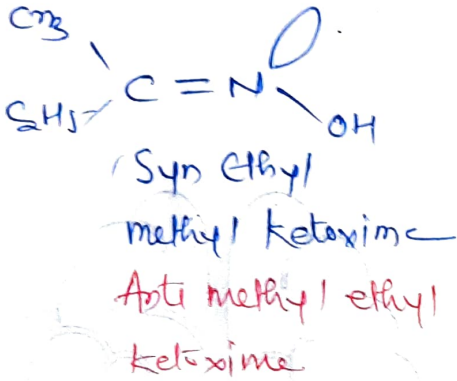 CH3
C = N
C2H5
OH
Syn Ethyl
methyl ketoxime
Anti methyl ethyl
ketoxime